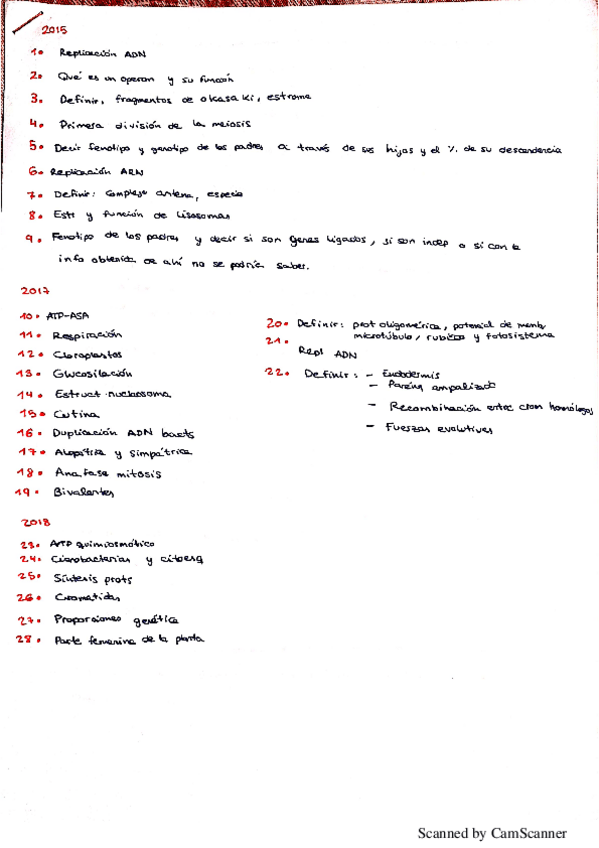 2015
1. Replicación ADN
2. Qué es un operon y su función
3. Definir, fragmentos de okasaki, estroma
4. Primera división de la meiosis
5. Decir fenotipo y genotipo de los padres a través de sus hijos y el % de su descendencia
6. Replicación ARN
7. Definir: complejo antena, especie
8. Estr y función de lisosomas
9. Fenotipo de los padres y decir si son genes ligados, si son indep o si con la
info obtenida de ahí no se podría saber.
2017
10. ATP-ASA
11. Respiración
12. Cloroplastos
13. Glucosilación
14. Estruct. nucleosoma
15. Cutina
16. Duplicación ADN bacts
17. Alopátria y simpátrica
18. Anafase mitosis
19. Bivalentes
20. Definir: prot oligomérica, potencial de memb,
microtúbulo, rubisco y fotosistema
21. Repl ADN
22. Definir: - Endodermis
- Parénq ampalizado
- Recombinación entre crom homólogos
- Fuerzas evolutivas
2018
23. ATP quimiosmótico
24. Cianobacterias y
25. Síntesis prots
26. Cromatidas
27. Proporciones genética
28. Parte femenina de la planta
Scanned by CamScanner